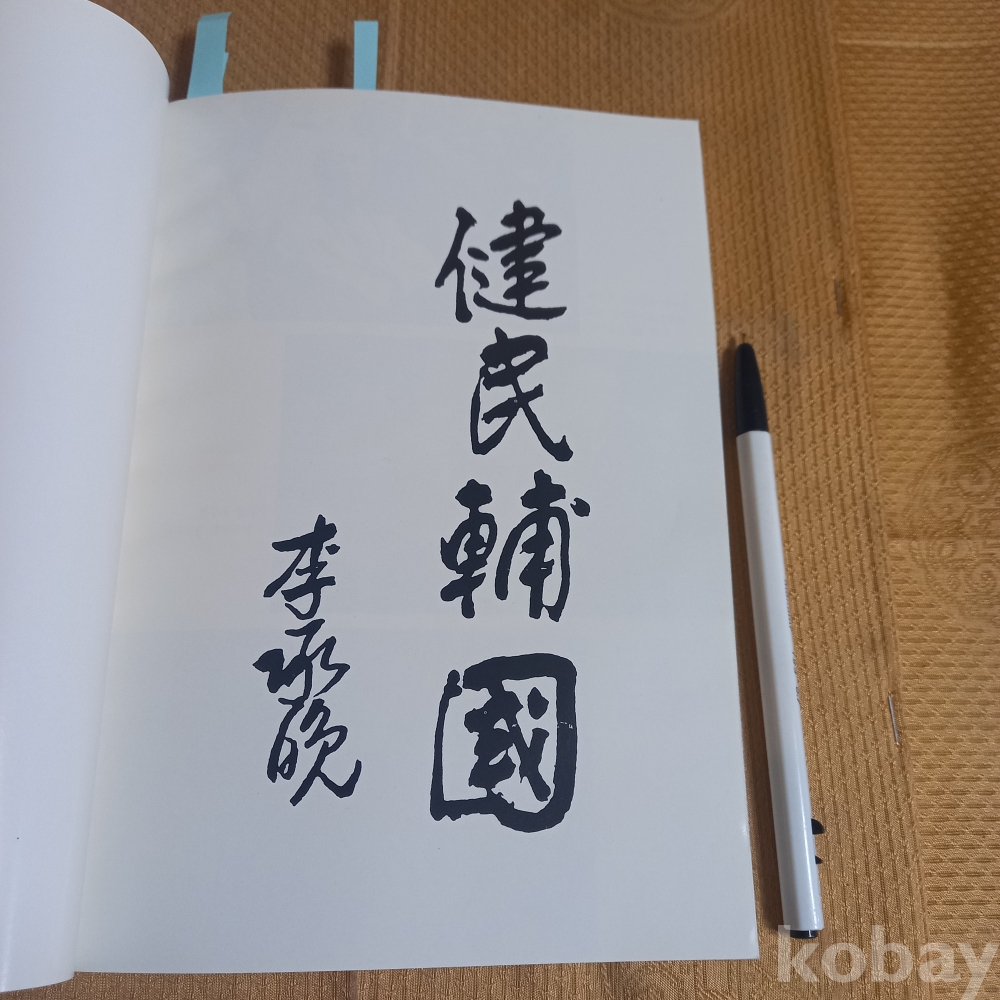 健民輔國
李承晩
kobay